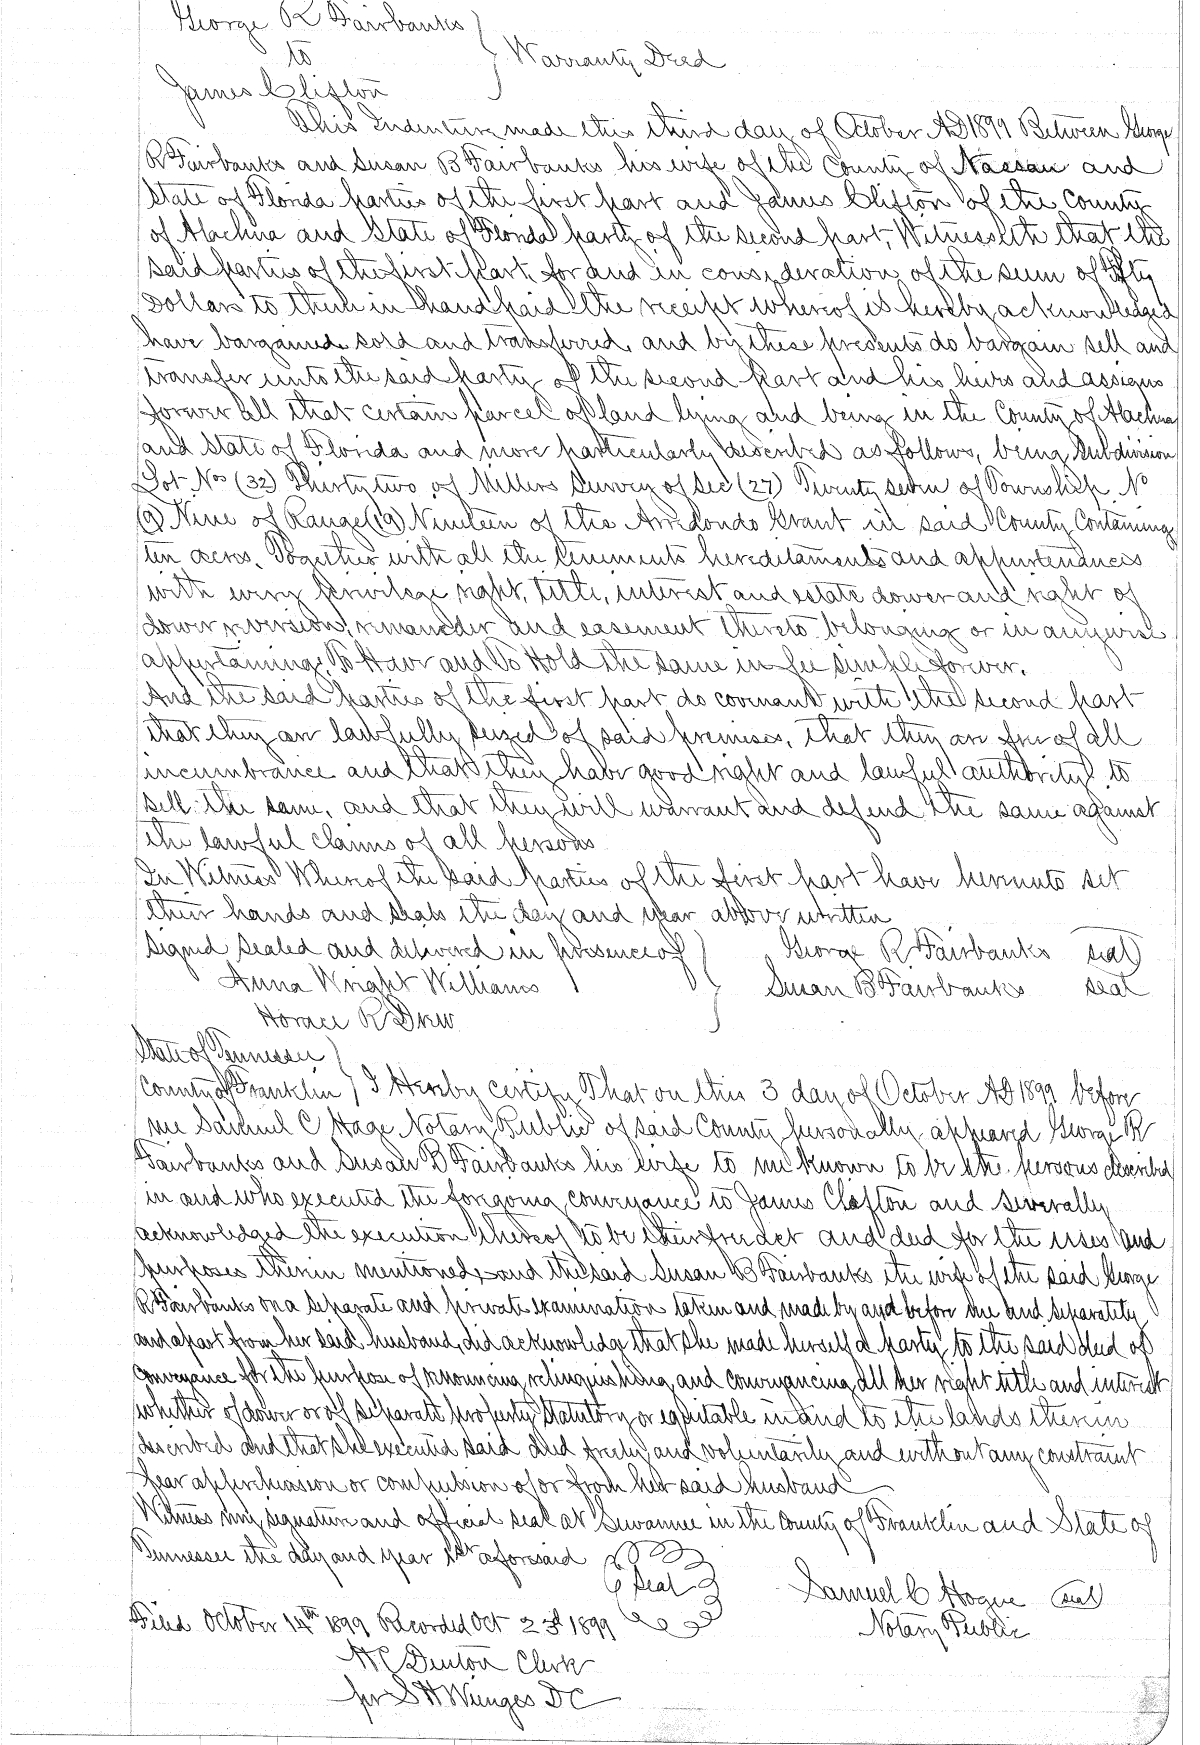 George R Fairbanks
to
Warranty Deed
James Clifton
This Indenture made this third day of October AD 1899 Between George
R Fairbanks and Susan B Fairbanks his wife of the County of Nassau and
State of Florida parties of the first part and James Clifton of the County
of Alachua and State of Florida party of the second part, Witnesseth that the
said parties of the first part, for and in consideration of the sum of Fifty
Dollars to them in hand paid the receipt whereof is hereby acknowledged
have bargained, sold and transferred, and by these presents do bargain sell and
transfer unto the said party of the second part and his heirs and assigns
forever all that certain parcel of land lying and being in the County of Alachua
and State of Florida and more particularly described as follows, being Subdivision
Lot Nos (32) Thirty two of Millers Survey of Sec (27) Twenty seven of Township No
(9) Nine of Range (19) Nineteen of the Arredondo Grant in said County Containing
ten acres. Together with all the tenements hereditaments and appurtenances
with every privilege right, title, interest and estate dower and right of
dower reversion, remainder and easement thereto belonging or in anywise
appertaining: To Have and To Hold the same in fee simple forever.
And the said parties of the first part do covenant with the second part
that they are lawfully seized of said premises, that they are free of all
incumbrance and that they have good right and lawful authority to
sell the same, and that they will warrant and defend the same against
the lawful claims of all persons
In Witness Whereof the said parties of the first part have hereunto set
their hands and seals the day and year above written
Signed sealed and delivered in presence of George R Fairbanks seal
Anna Wright Williams Susan B Fairbanks seal
Horace R Drew
State of Tennessee
County of Franklin I Hereby certify That on this 3 day of October AD 1899 before
me Samuel C Hoge Notary Public of said County personally appeared George R
Fairbanks and Susan B Fairbanks his wife to me known to be the persons described
in and who executed the foregoing conveyance to James Clifton and severally
acknowledged the execution thereof to be their free act and deed for the uses and
purposes therein mentioned; and the said Susan B Fairbanks the wife of the said George
R Fairbanks on a separate and private examination taken and made by and before me and separately
and apart from her said husband, did acknowledge that she made herself a party to the said deed of
conveyance for the purpose of renouncing, relinquishing and conveyancing all her right title and interest
whether of dower or of separate property statutory or equitable in and to the lands therein
described and that she executed said deed freely and voluntarily and without any constraint
fear apprehension or compulsion of or from her said husband
Witness my signature and official seal at Sewannee in the County of Franklin and State of
Tennessee the day and year 1st aforesaid
Seal
Samuel C Hogue seal
Filed October 14th 1899 Recorded Oct 23d 1899 Notary Public
H C Denton Clerk
per S H Wienges DC